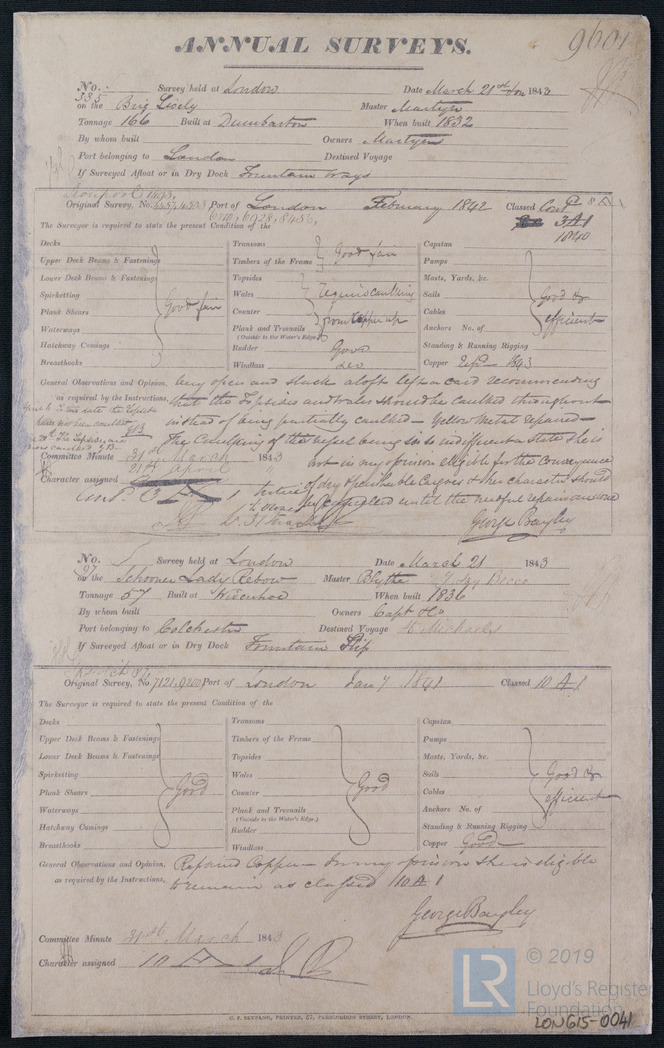 ANNUAL SURVEYS.
9601
No. 335 Survey held at London Date March 21st 1843
on the Brig Lively Master Martyn
Tonnage 166 Built at Dumbarton When built 1832
By whom built Owners Martyn
Port belonging to London Destined Voyage
If Surveyed Afloat or in Dry Dock Fountain Ways
Original Survey, No. Port of London February 1842 Classed Cont
3 A 1
1840
The Surveyor is required to state the present Condition of the
Decks Transoms Capstan
Upper Deck Beams & Fastenings Timbers of the Frame Good fair Pumps
Lower Deck Beams & Fastenings Topsides Masts, Yards, &c.
Spirketting Wales require caulking Sails Good &
Plank Shears Good fair Counter Cables efficient
Waterways Plank and Treenails (Outside to the Water's Edge) from Copper up Anchors No. of
Hatchway Comings Rudder Good Standing & Running Rigging
Breasthooks Windlass Do Copper Repd 1843
General Observations and Opinion, Very open and slack aloft left a card recommending
as required by the Instructions, that the Topsides and wales should be caulked throughout
instead of being partially caulked – Yellow Metal repaired –
The Caulking of the vessel being in so indifferent state she is
Committee Minute 31st March 1843 not in my opinion eligible for the conveyance
21st April
Character assigned of dry & perishable Cargoes & her character should
be until the needful repairs are done
George Bayley
No. 97 Survey held at London Date March 21 1843
on the Schooner Lady Rebow Master Blythe
Tonnage 57 Built at Wivenhoe When built 1836
By whom built Owners Capt & Co
Port belonging to Colchester Destined Voyage St Michaels
If Surveyed Afloat or in Dry Dock Fountain Slip
Original Survey, No. 7121,9200 Port of London Jany 1841 Classed 10 A 1
The Surveyor is required to state the present Condition of the
Decks Transoms Capstan
Upper Deck Beams & Fastenings Timbers of the Frame Pumps
Lower Deck Beams & Fastenings Topsides Masts, Yards, &c.
Spirketting Wales Sails Good &
Plank Shears Good Counter Good Cables efficient
Waterways Plank and Treenails (Outside to the Water's Edge.) Anchors No. of
Hatchway Comings Rudder Standing & Running Rigging
Breasthooks Windlass Copper Good
General Observations and Opinion, Repaired Copper – In my opinion she is eligible
as required by the Instructions, to remain as classed 10 A 1
George Bayley
Committee Minute 31st March 1843
Character assigned 10 A 1
C. F. SEYFANG, PRINTER, 57, FENCHURCH STREET, LONDON.
LR © 2019
Lloyd's Register
Foundation
LON615-0041